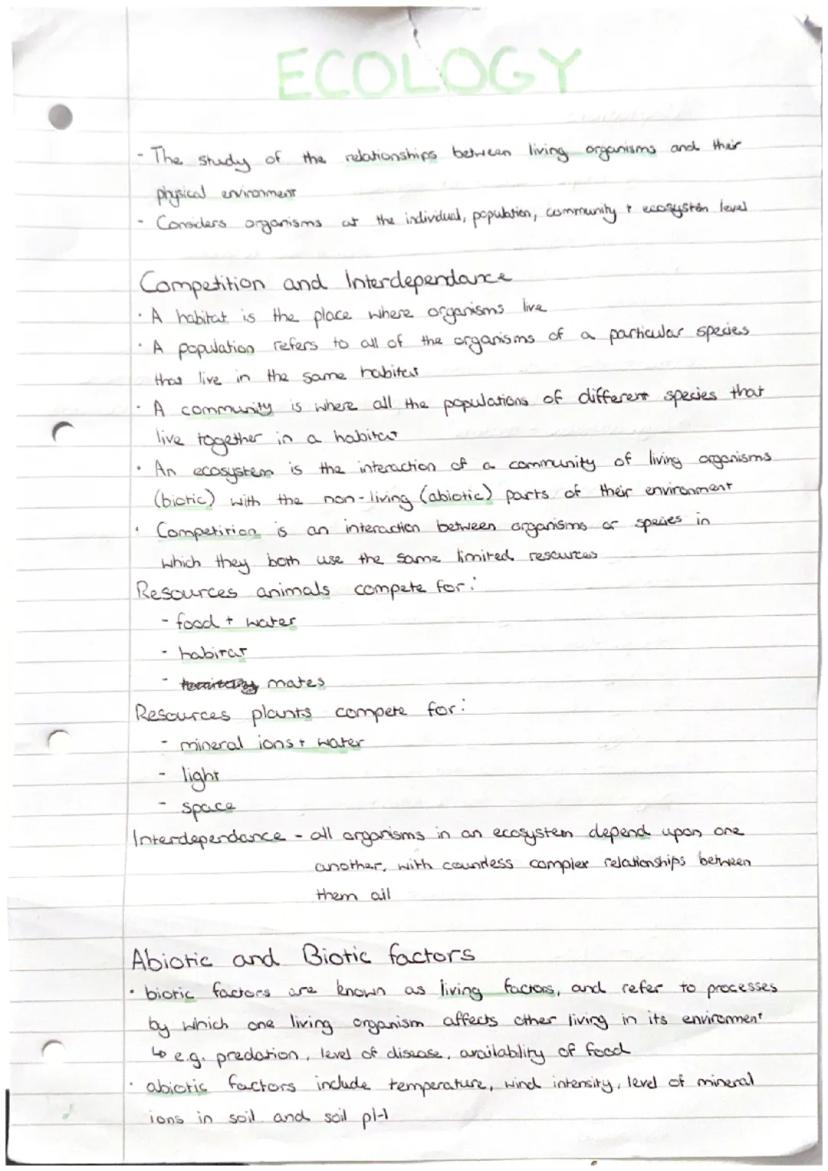 ECOLOGY
- The study of the relationships between living organisms and their
physical environment
- Considers organisms at the individual, population, community + ecosystem level
Competition and Interdependance
· A habitat is the place where organisms live
· A population refers to all of the organisms of a particular species
that live in the same habitat
· A community is where all the populations of different species that
live together in a habitat
· An ecosystem is the interaction of a community of living organisms
(biotic) with the non-living (abiotic) parts of their environment
· Competition is an interaction between organisms or species in
which they both use the same limited resources
Resources animals compete for:
- food + water
- habitat
- mates
Resources plants compete for:
- mineral ions + water
- light
- space
Interdependance - all organisms in an ecosystem depend upon one
another, with countless complex relationships between
them all
Abiotic and Biotic factors
· biotic factors are known as living factors, and refer to processes
by which one living organism affects other living in its environment
↳ e.g. predation, level of disease, availablity of food
· abiotic factors include temperature, wind intensity, level of mineral
ions in soil and soil pH